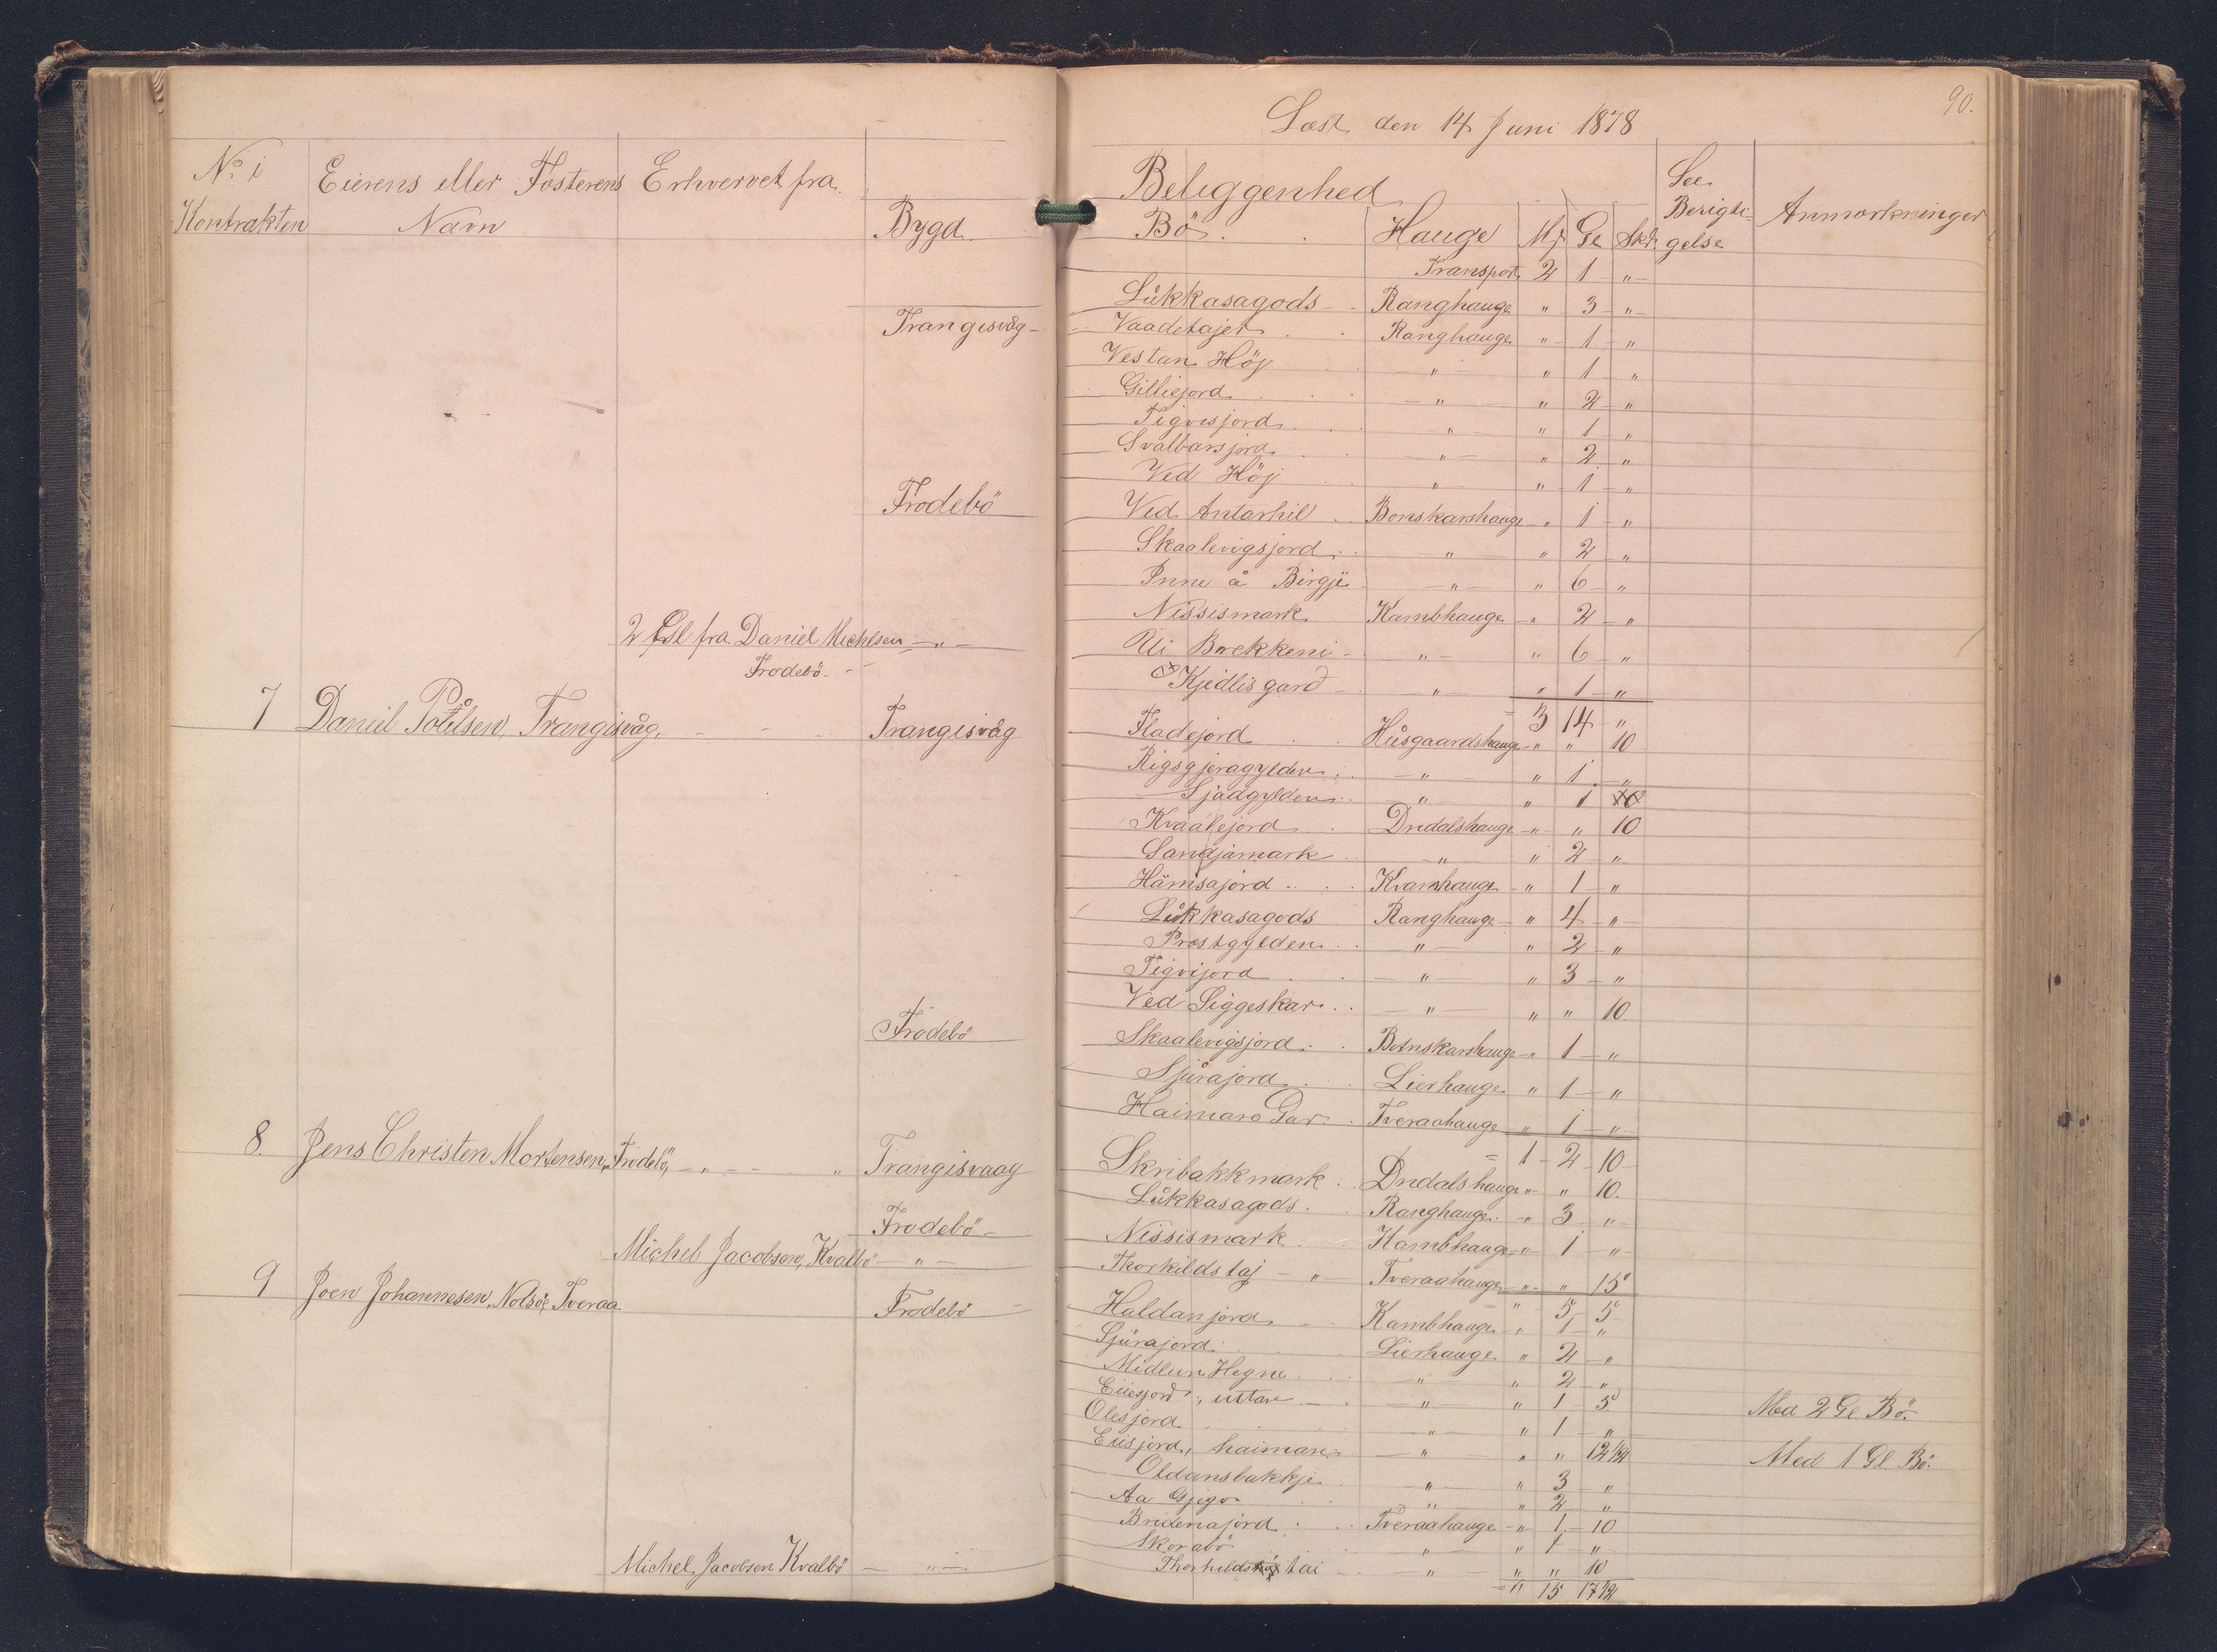 90.
Læst den 14 Juni 1878
No i Kontrakten | Eierens eller Fæsterens Navn | Erhvervet fra | Bygd | Beliggenhed Bö | Hauge | Mk | Gl | Sk | See Berigtigelse | Anmærkninger
Transport 2 1 "
Trangisvåg - Lükkasagods Ranghauge " 3 "
Vaadetajet Ranghauge " 1 "
Vestan Höj " " 1 "
Gilliejord " " 2 "
Tigvisjord " " 1 "
Svalbarsjord " " 2 "
Ved Höj " " 1 "
Frodebö Ved Antarhil Bonskarshauge " 1 "
Skaalevigsjord " " 2 "
Inne å Birgje " " 6 "
Nissismark Kambhauge " 2 "
2 Gl fra Daniel Michlsen - " - Uti Brekkeni " " 6 "
Frodebö - Kjedlis gard " " 1 "
= 3 14 "
7 Daniel Poülsen, Trangisvåg, Trangisvåg Fladejord Hüsgaardshauge " " 10
Rigsgjeragylden " " 1 "
Sjadgylden " " 1
Kvaalejord Drdalshauge " " 10
Sandjamark " " 2 "
Hämsajord Kvanhauge " 1 "
Lükkasagods Ranghauge " 4 "
Præstgylden " " 2 "
Tigvijord " " 3 "
Ved Siggeskar " " " 10.
Frodebö Skaalevigsjord Botnskarshauge " 1 "
Sjürajord Lierhauge " 1 "
Haimaro Gar Tveraahauge " 1 "
= 1 2 10
8. Jens Christen Mortensen, Frodebö, " " Trangisvaag Skribakkmark Drdalshauge " " 10.
Lükkasagods Ranghauge " 3 "
Frodebö - Nissismark Kambhauge " 1 "
Michel Jacobsen, Kvalbö - " - Thorkildstaj - " Tveraahauge " " 15
= " 5 5
9 Joen Johannesen, Nolsö, Tveraa Frodebö Haldanjord Kambhauge " 1 "
Sjürajord Lierhauge " 2 "
Midlun Hegne " " 2 "
Eiiesjord, ustare " " 1 5 Med 2 Gl. Bö.
Olesjord " " 1 "
Eiisjord, haimare " " " 12 1/2 Med 1 Gl. Bö.
Oldansbakkje " " 3 "
Aa Gjegv " " 2 "
Bridenajord Tveraahauge " 1 10
Skorabö " " 1 "
Michel Jacobsen Kvalbö - " - Thorkilds tai " " " 10
= " 15 17 1/2